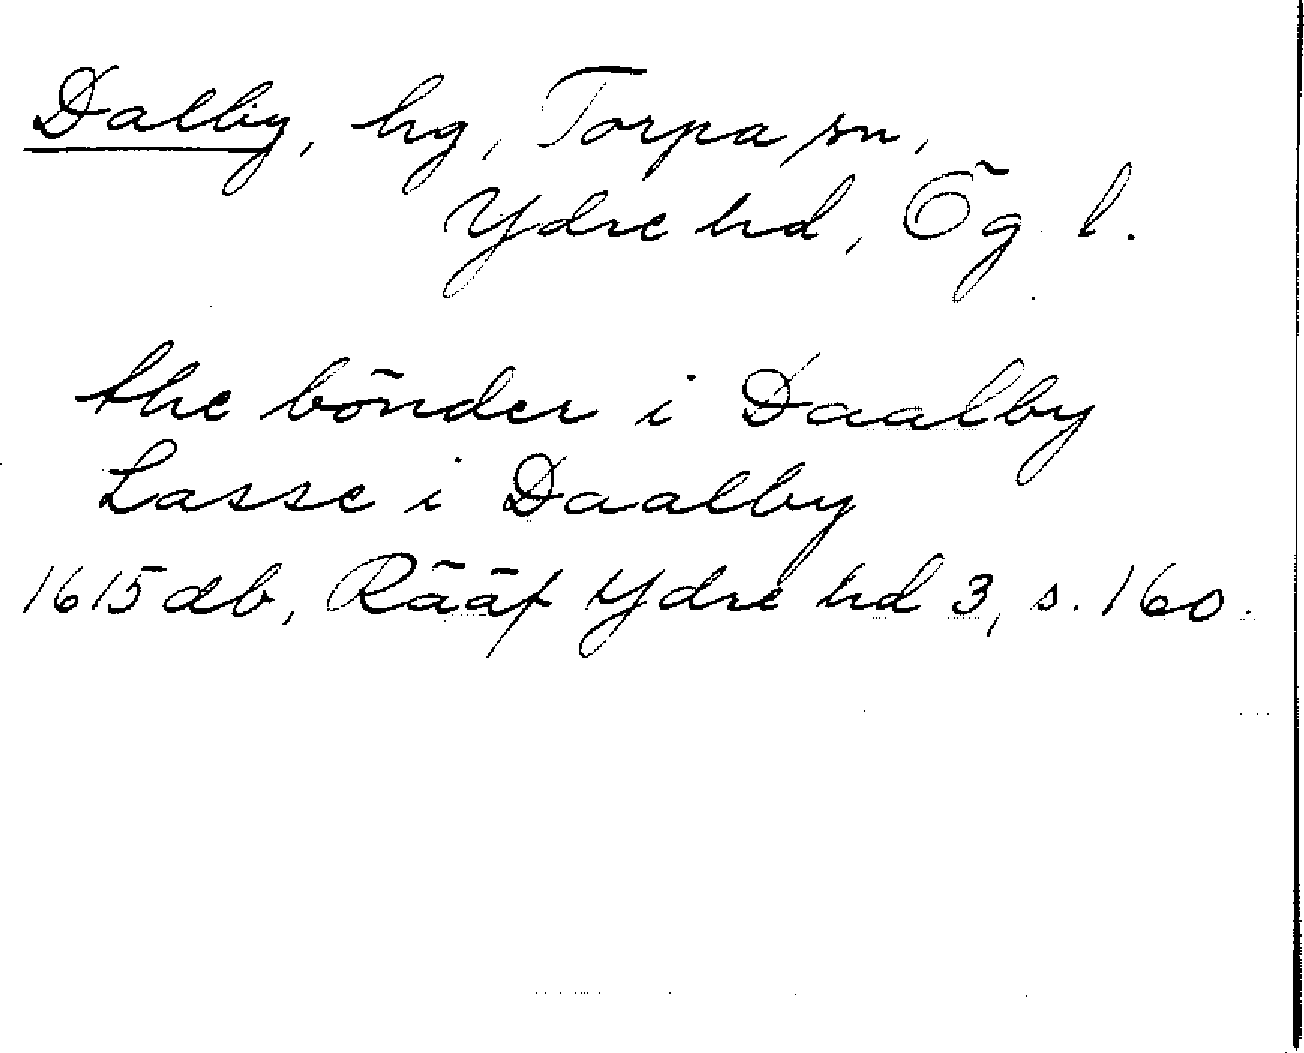 Dalby, hg, Torpa sn,
Ydre hd, Ög l.
the bönder i Daalby
Lasse i Daalby
1615 db, Rääf Ydre hd 3, s. 160.